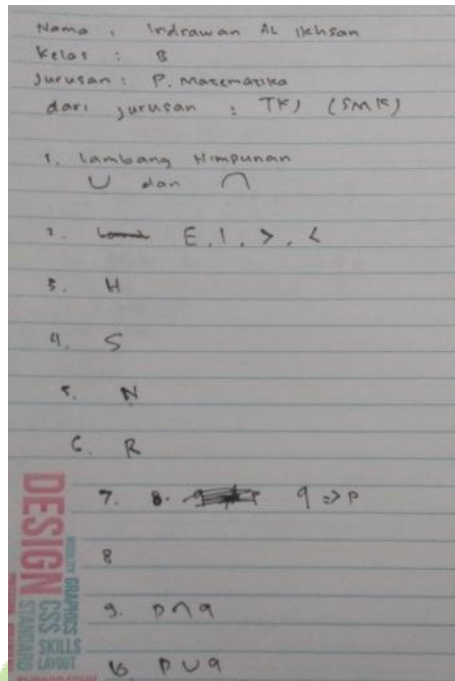 Nama : Indrawan AL Ikhsan
Kelas : B
Jurusan : P. Matematika
dari jurusan : TKJ (SMK)
1. Lambang Himpunan
∪ dan ∩
2. E, I, >, <
3. H
4. S
5. N
6. R
7. 8. q => p
8
9. p ∩ q
10 p ∪ q
DESIGN
GRAPHICS
CSS
SKILLS
STANDARD
LAYOUT